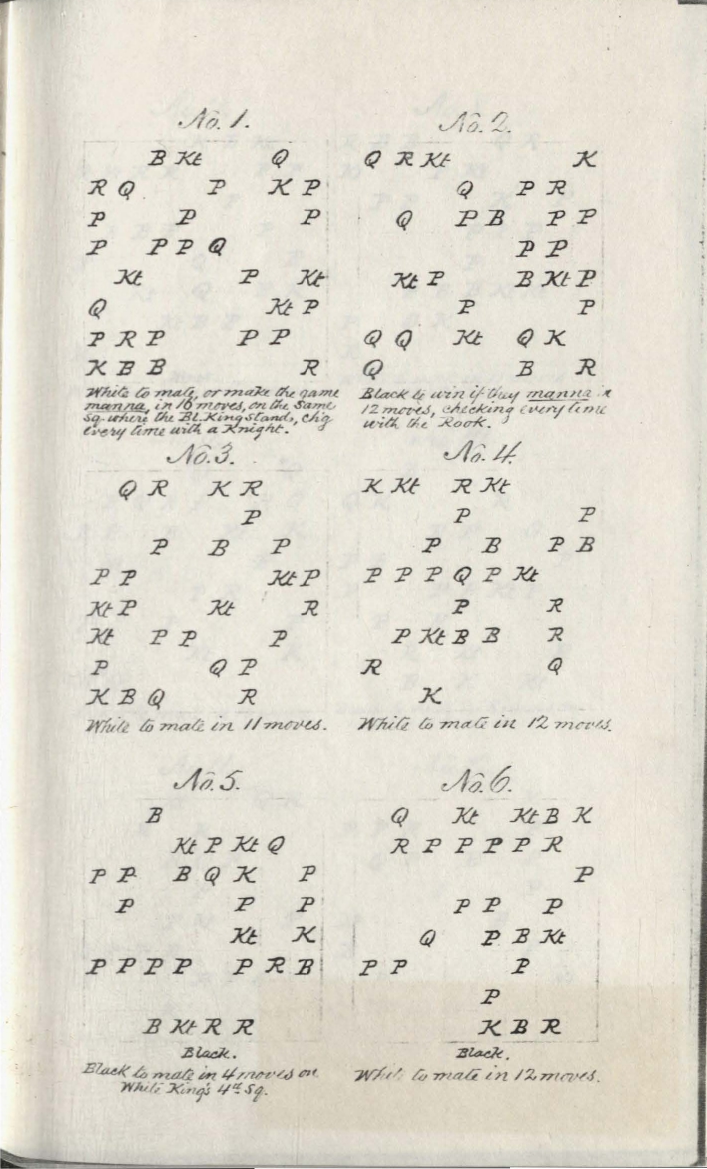 No. 1.
B Kt Q
R Q P K P
P P P
P P P Q
Kt P Kt
Q Kt P
P R P P P
K B B R
White to mate, or make the game
manna, in 16 moves, on the same
sq. where the Bl. King stands, ch'g
every time with a Knight.
No. 2.
Q R Kt K
Q P R
Q P B P P
P P
Kt P B Kt P
P P
Q Q Kt Q K
Q B R
Black to win if they manna in
12 moves, checking every time
with the Rook.
No. 3.
Q R K R
P
P B P
P P Kt P
Kt P Kt R
Kt P P P
P Q P
K B Q R
White to mate in 11 moves.
No. 4.
K Kt R Kt
P P
P B P B
P P P Q P Kt
P R
P Kt B B R
R Q
K
White to mate in 12 moves.
No. 5.
B
Kt P Kt Q
P P B Q K P
P P P
Kt K
P P P P P R B
B Kt R R
Black.
Black to mate in 4 moves on
White King's 4th Sq.
No. 6.
Q Kt Kt B K
R P P P P R
P
P P P
Q P B Kt
P P P
P
K B R
Black.
White to mate in 12 moves.